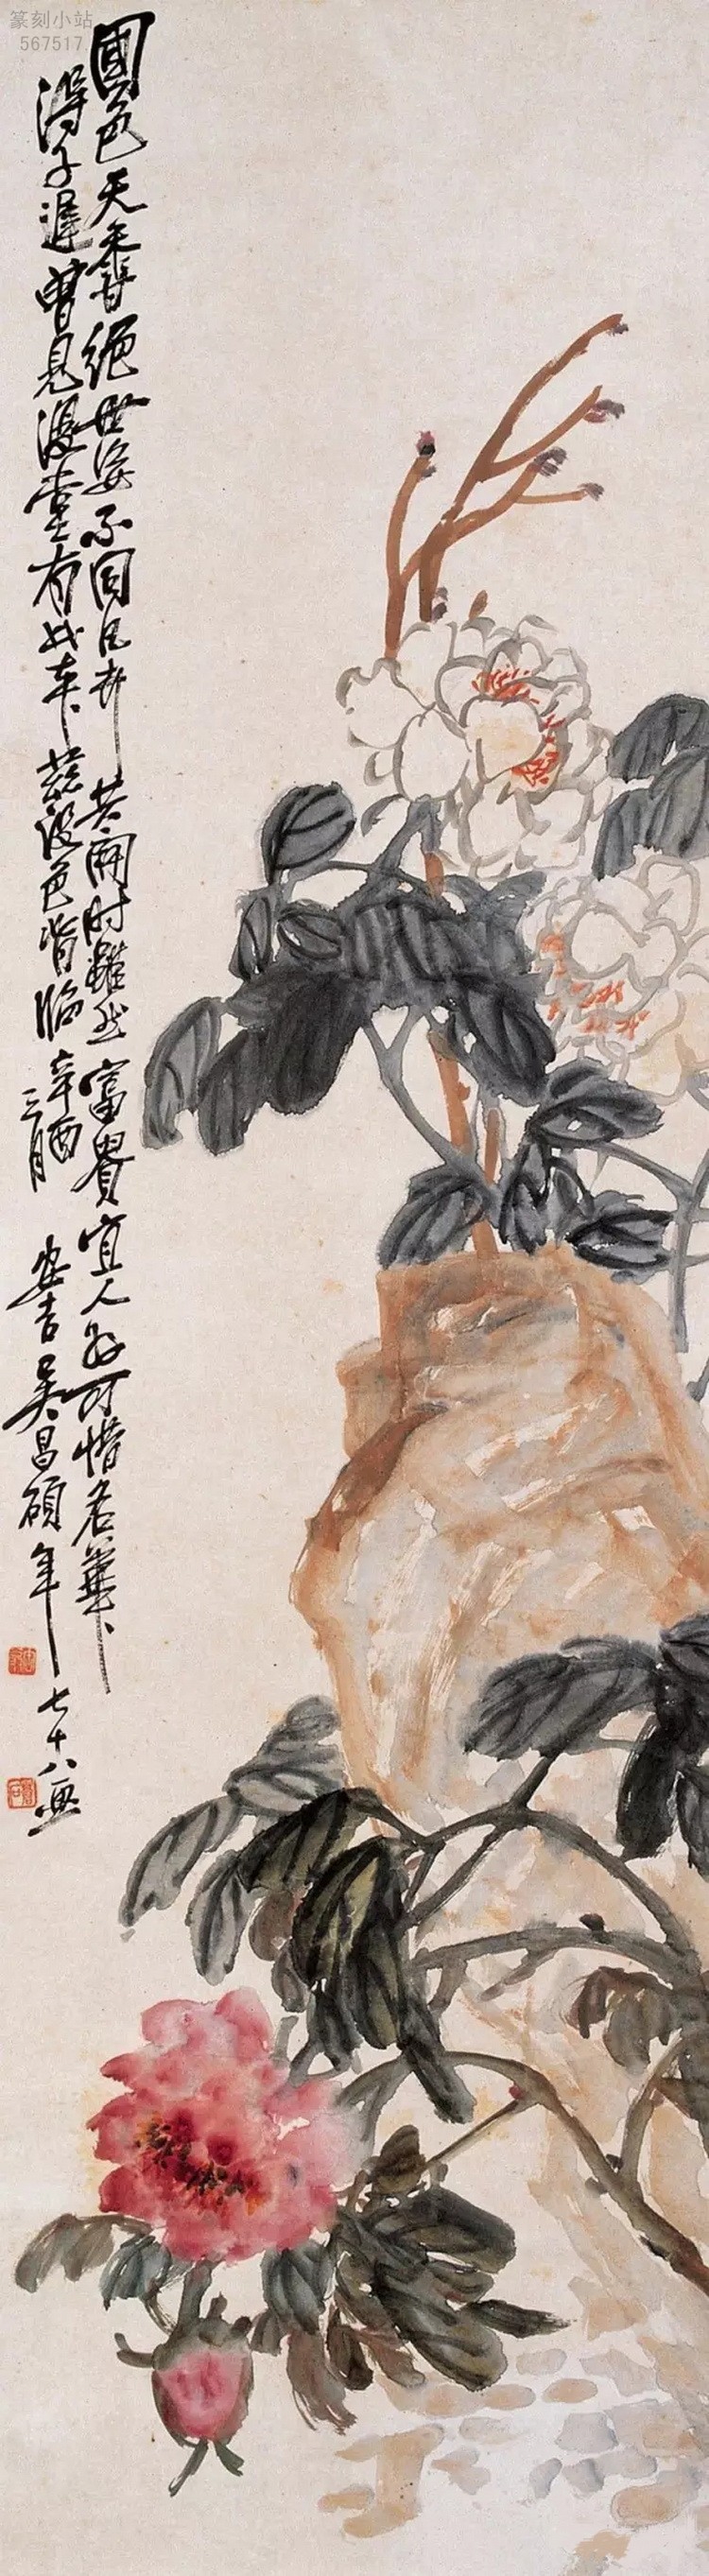 篆刻小站
567517
國色天香絕世姿不同凡卉共開時雖然富貴宜人好可惜名華
得子遲曾見漫堂有此本茲設色背臨辛酉
三月
安吉吳昌碩年七十八畫